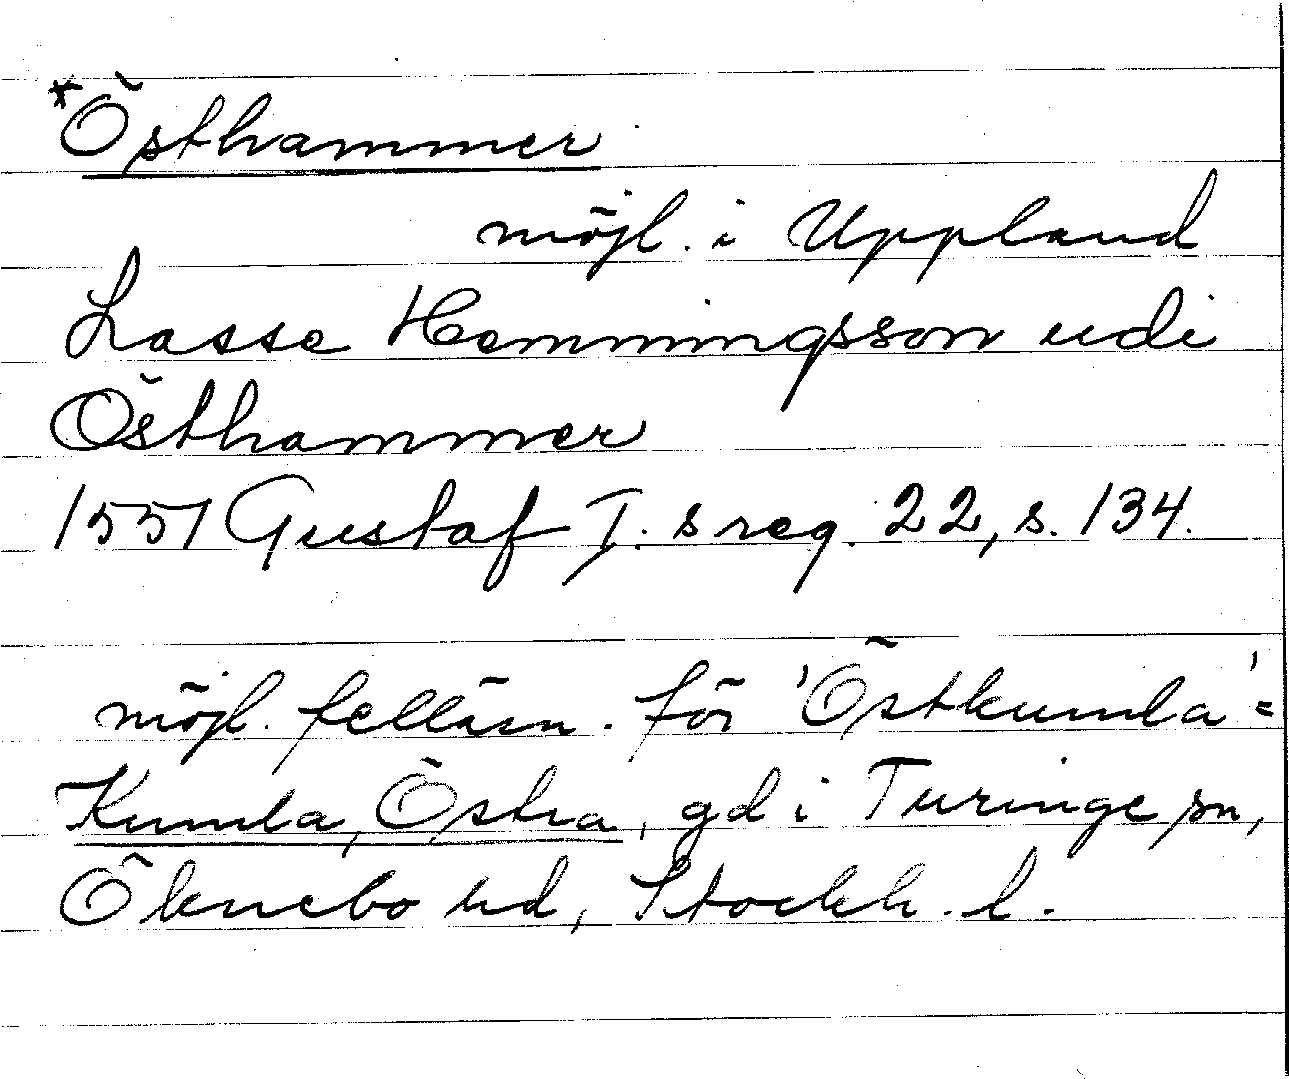 *Östhammer
möjl. i Uppland
Lasse Hemmingsson udi
Östhammer
1551 Gustaf I:s reg. 22, s. 134.
möjl. felläsn. för 'Östkumla' =
Kumla, Östra, gd i Turinge sn,
Öknebo hd, Stockh. l.